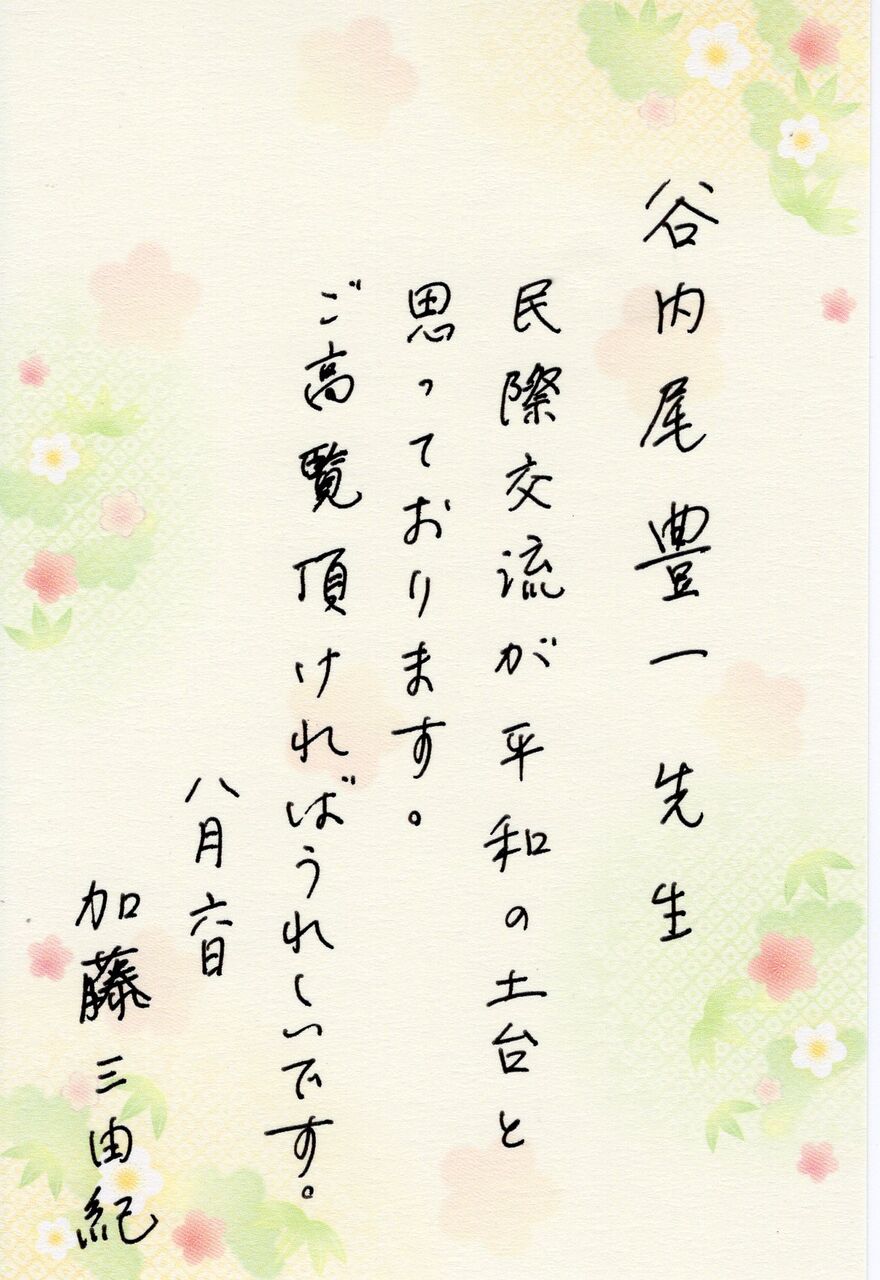 谷内尾豊一 先生
民際交流が平和の土台と
思っております。
ご高覧頂ければうれしいです。
八月六日
加藤三由紀